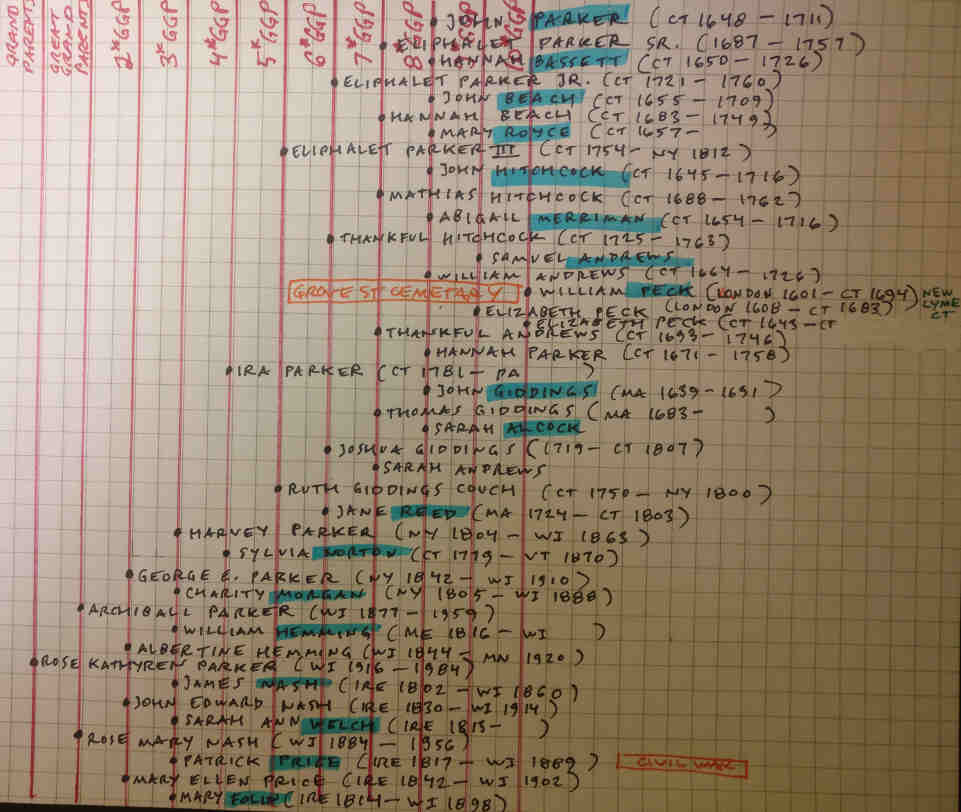 GRAND PARENTS
GREAT GRAND PARENTS
2*GGP
3*GGP
4*GGP
5*GGP
6*GGP
7*GGP
8*GGP
GGP
GGP
JOHN PARKER (CT 1648 - 1711)
ELIPHALET PARKER SR. (1687 - 1757)
HANNAH BASSETT (CT 1650 - 1726)
ELIPHALET PARKER JR. (CT 1721 - 1760)
JOHN BEACH (CT 1655 - 1709)
HANNAH BEACH (CT 1683 - 1749)
MARY ROYCE (CT 1657 - )
ELIPHALET PARKER III (CT 1754 - NY 1812)
JOHN HITCHCOCK (CT 1645 - 1716)
MATHIAS HITCHCOCK (CT 1688 - 1762)
ABIGAIL MERRIMAN (CT 1654 - 1716)
THANKFUL HITCHCOCK (CT 1725 - 1763)
SAMUEL ANDREWS
WILLIAM ANDREWS (CT 1664 - 1726)
GROVE ST CEMETARY
WILLIAM PECK (LONDON 1601 - CT 1694)
NEW LYME CT
ELIZABETH PECK (LONDON 1608 - CT 1683)
ELIZABETH PECK (CT 1643 - CT
THANKFUL ANDREWS (CT 1693 - 1746)
HANNAH PARKER (CT 1671 - 1758)
IRA PARKER (CT 1781 - PA )
JOHN GIDDINGS (MA 1639 - 1691)
THOMAS GIDDINGS (MA 1683 - )
SARAH ALCOCK
JOSHUA GIDDINGS (1719 - CT 1807)
SARAH ANDREWS
RUTH GIDDINGS COUCH (CT 1750 - NY 1800)
JANE REED (MA 1724 - CT 1803)
HARVEY PARKER (NY 1804 - WI 1863)
SYLVIA NORTON (CT 1779 - VT 1870)
GEORGE E. PARKER (NY 1842 - WI 1910)
CHARITY MORGAN (NY 1805 - WI 1888)
ARCHIBALL PARKER (WI 1877 - 1959)
WILLIAM HEMMING (ME 1816 - WI )
ALBERTINE HEMMING (WI 1844 - MN 1920)
ROSE KATHYREN PARKER (WI 1916 - 1984)
JAMES NASH (IRE 1802 - WI 1860)
JOHN EDWARD NASH (IRE 1830 - WI 1914)
SARAH ANN WELCH (IRE 1813 - )
ROSE MARY NASH (WI 1884 - 1956)
PATRICK PRICE (IRE 1817 - WI 1889)
CIVIL WAR
MARY ELLEN PRICE (IRE 1842 - WI 1902)
MARY (IRE 1814 - WI 1898)